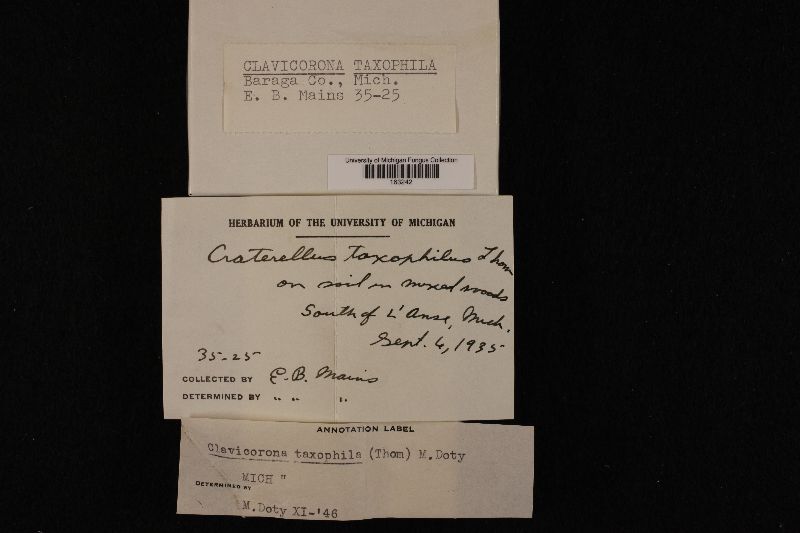 CLAVICORONA TAXOPHILA
Baraga Co., Mich.
E. B. Mains 35-25
University of Michigan Fungus Collection
163242
HERBARIUM OF THE UNIVERSITY OF MICHIGAN
Craterellus taxophilus Thom
on soil in mixed woods
South of L'Anse, Mich.
Sept. 6, 1935
35-25
COLLECTED BY E. B. Mains
DETERMINED BY " " ".
ANNOTATION LABEL
Clavicorona taxophila (Thom) M.Doty
MICH "
DETERMINED BY
M.Doty XI-'46